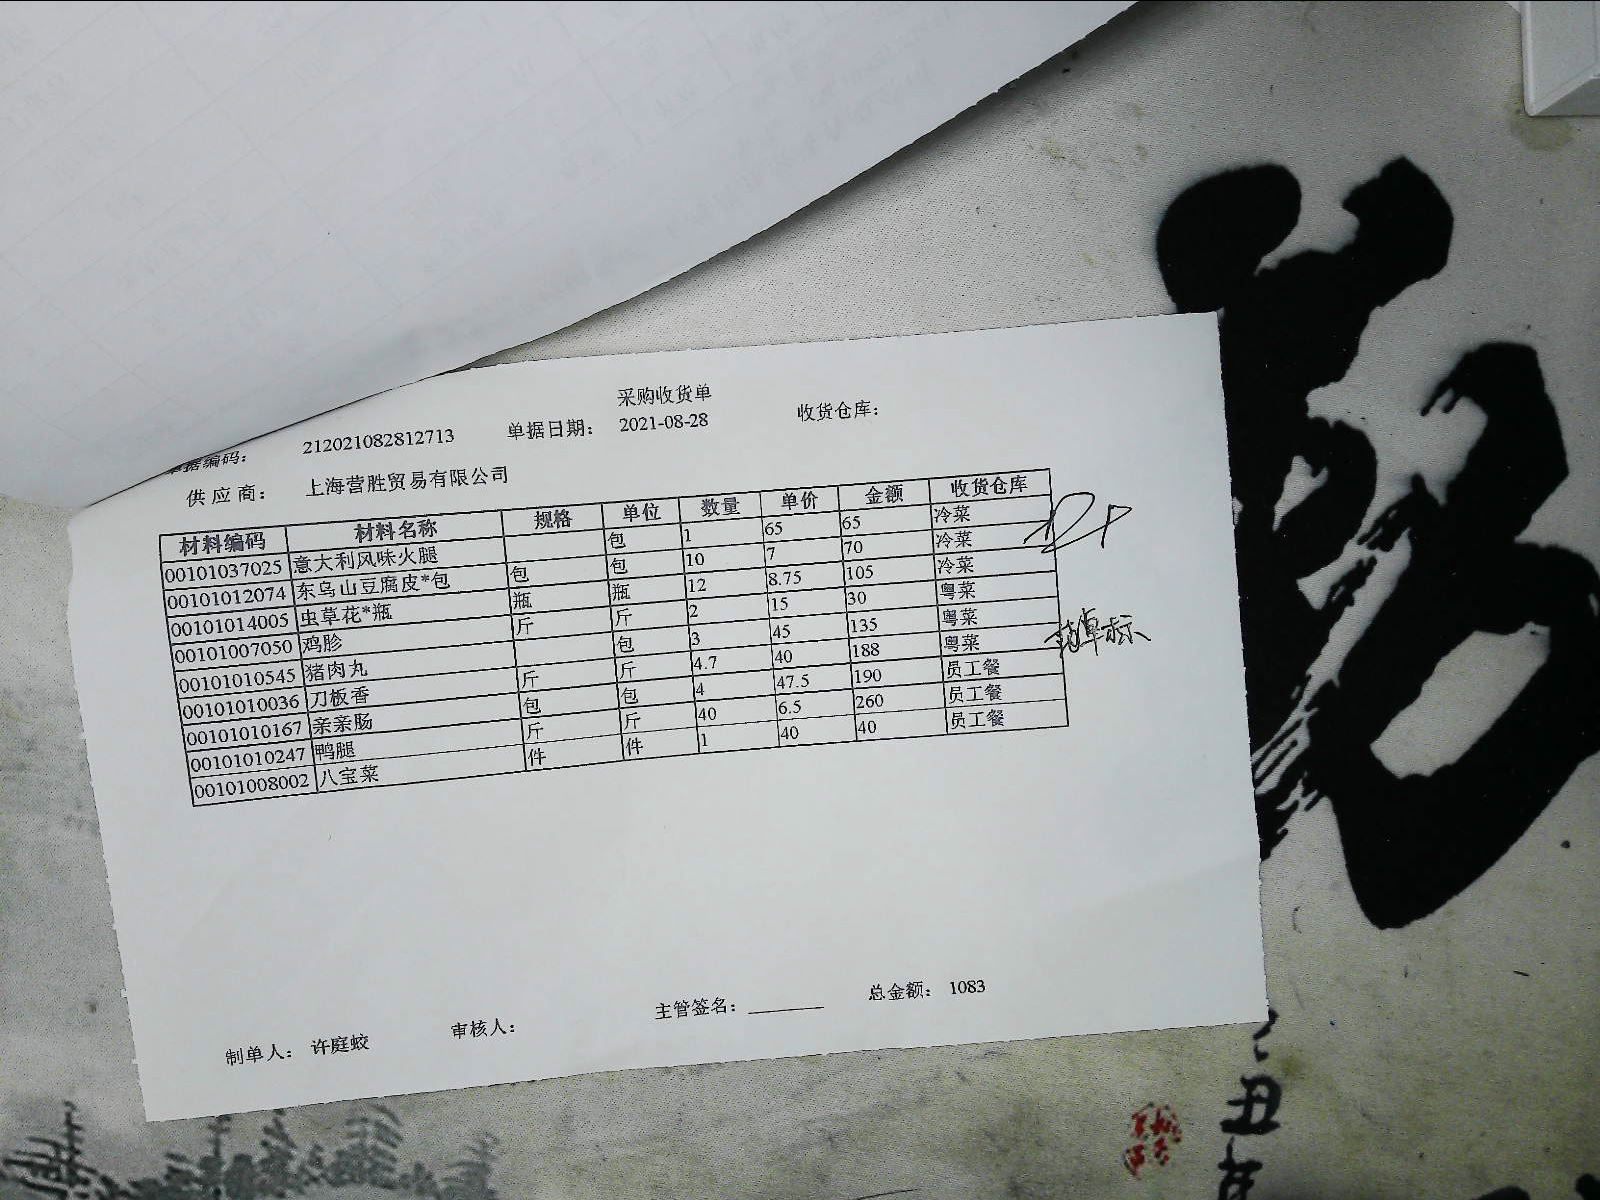 采购收货单
单据编码： 212021082812713 单据日期： 2021-08-28 收货仓库：
供应商： 上海营胜贸易有限公司
材料编码 材料名称 规格 单位 数量 单价 金额 收货仓库
00101037025 意大利风味火腿 包 1 65 65 冷菜
00101012074 东乌山豆腐皮*包 包 包 10 7 70 冷菜
00101014005 虫草花*瓶 瓶 瓶 12 8.75 105 冷菜
00101007050 鸡胗 斤 斤 2 15 30 粤菜
00101010545 猪肉丸 包 3 45 135 粤菜
00101010036 刀板香 斤 斤 4.7 40 188 粤菜
00101010167 亲亲肠 包 包 4 47.5 190 员工餐
00101010247 鸭腿 斤 斤 40 6.5 260 员工餐
00101008002 八宝菜 件 件 1 40 40 员工餐
制单人： 许庭蛟 审核人： 主管签名： 总金额： 1083
丑